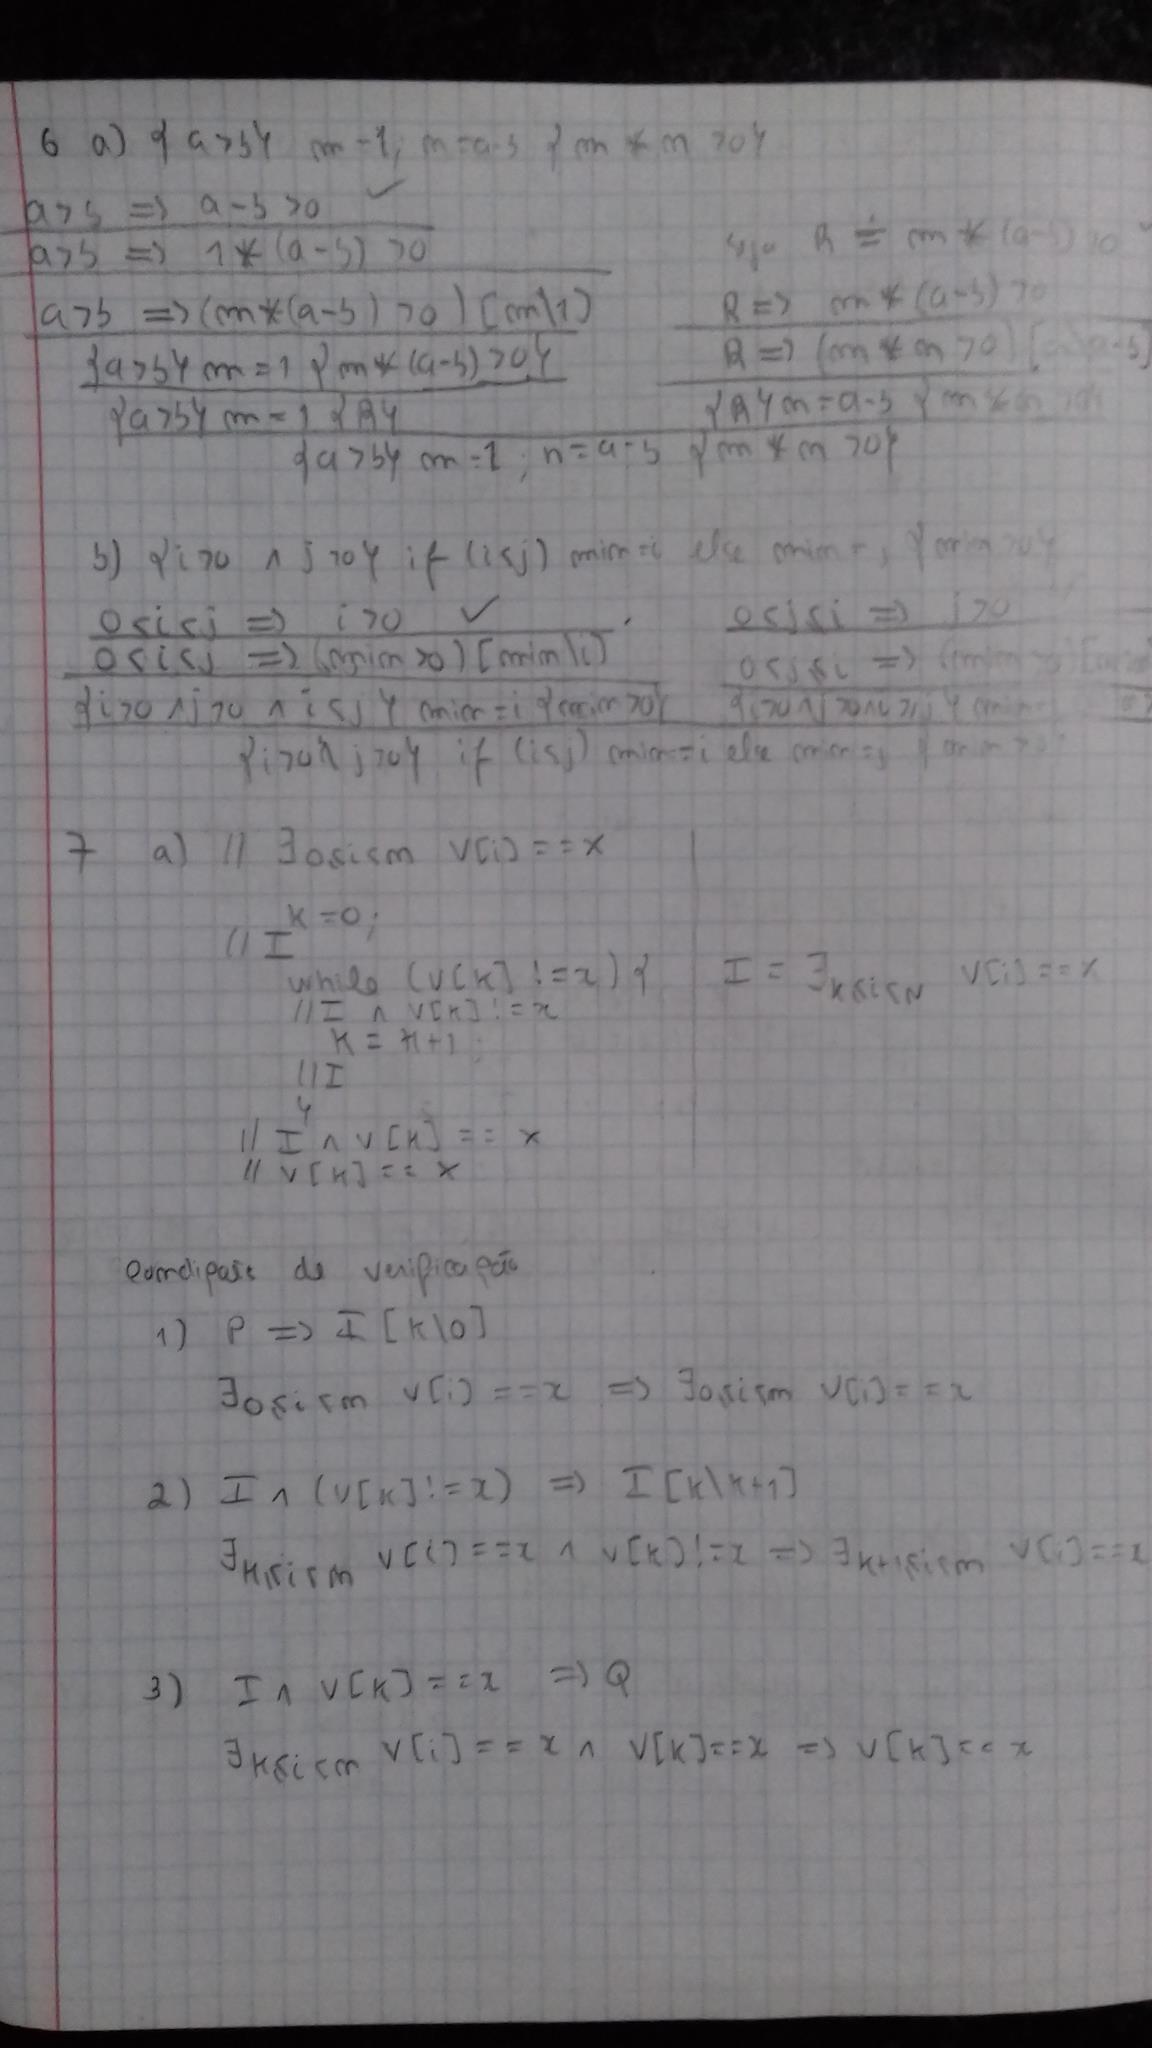 6 a) {a>b} m=1; n=a-b {m * n >0}
a>b => a-b >0 ✓
a>b => 1*(a-b) >0
a>b => (m*(a-b) >0) [m\1]
{a>b} m=1 {m*(a-b) >0}
{a>b} m=1 {R}
R ≐ m*(a-b) >0
R => m*(a-b) >0
R => (m*n >0) [n\a-b]
{R} n=a-b {m*n >0}
{a>b} m=1; n=a-b {m*n >0}
b) {i>0 ∧ j>0} if (i≤j) min=i else min=j {min>0}
0≤i≤j => i>0 ✓
0≤i≤j => (min>0) [min\i]
{i>0 ∧ j>0 ∧ i≤j} min=i {min>0}
0≤j≤i => j>0
0≤j≤i => (min>0)
{i>0 ∧ j>0 ∧ i>j} min=
{i>0 ∧ j>0} if (i≤j) min=i else min=j {min>0}
7 a) // ∃0≤i<m v[i]==x
k=0;
// I
while (v[k] !=x) {
// I ∧ v[k] !=x
k = k+1;
// I
}
// I ∧ v[k] == x
// v[k] == x
I = ∃k≤i<N v[i]==x
Condições de verificação
1) P => I [k\0]
∃0≤i<m v[i]==x => ∃0≤i<m v[i]==x
2) I ∧ (v[k] !=x) => I [k\k+1]
∃k≤i<m v[i]==x ∧ v[k] !=x => ∃k+1≤i<m v[i]==x
3) I ∧ v[k]==x => Q
∃k≤i<m v[i]==x ∧ v[k]==x => v[k]==x